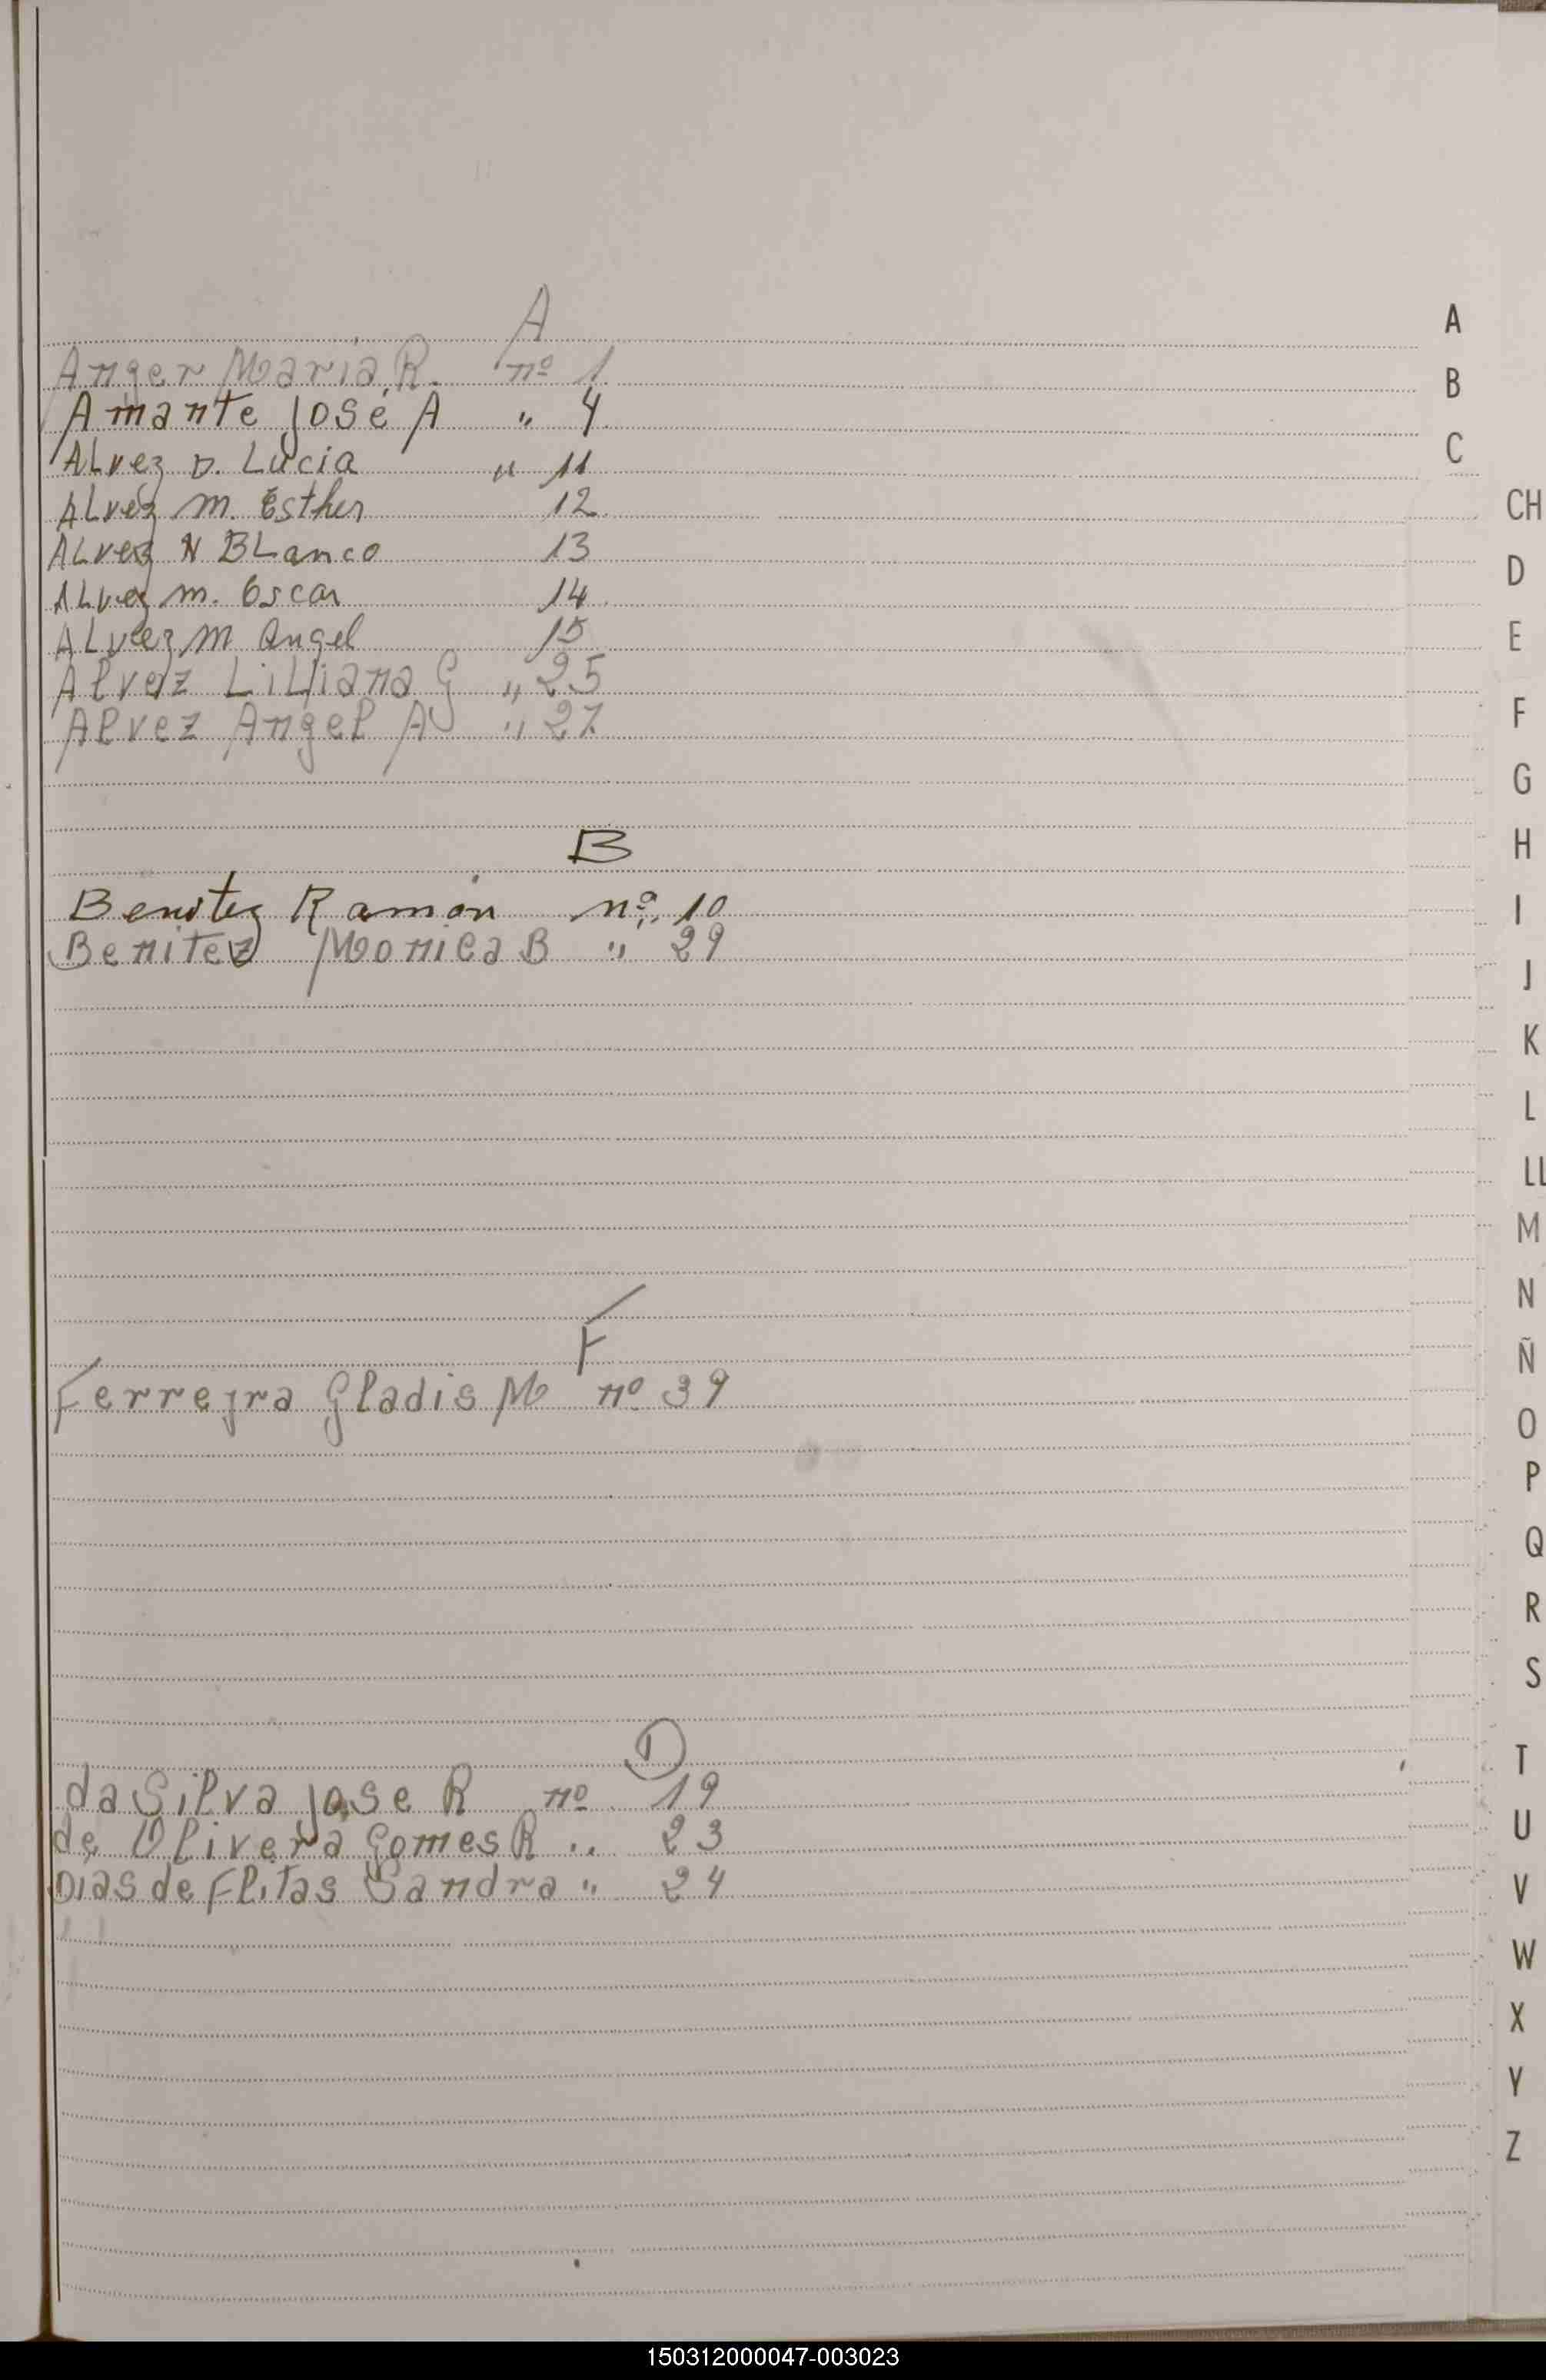 A
Anger Maria R. nº 1
Amante José A " 4
ALvez D. Lucia " 11
ALvez m. Esther 12
ALvez N BLanco 13
ALvez m. Oscar 14
ALvez m Angel 15
Alvez LiLliana G " 25
Alvez Angel A " 27
B
Benitez Ramón nº 10
Benitez Monica B " 29
F
Ferrejra Gladis M nº 39
D
da Silva Jose R nº 19
de Olivera Gomes R " 23
Dias de Flitas Sandra " 24
A
B
C
CH
D
E
F
G
H
I
J
K
L
LL
M
N
Ñ
O
P
Q
R
S
T
U
V
W
X
Y
Z
150312000047-003023